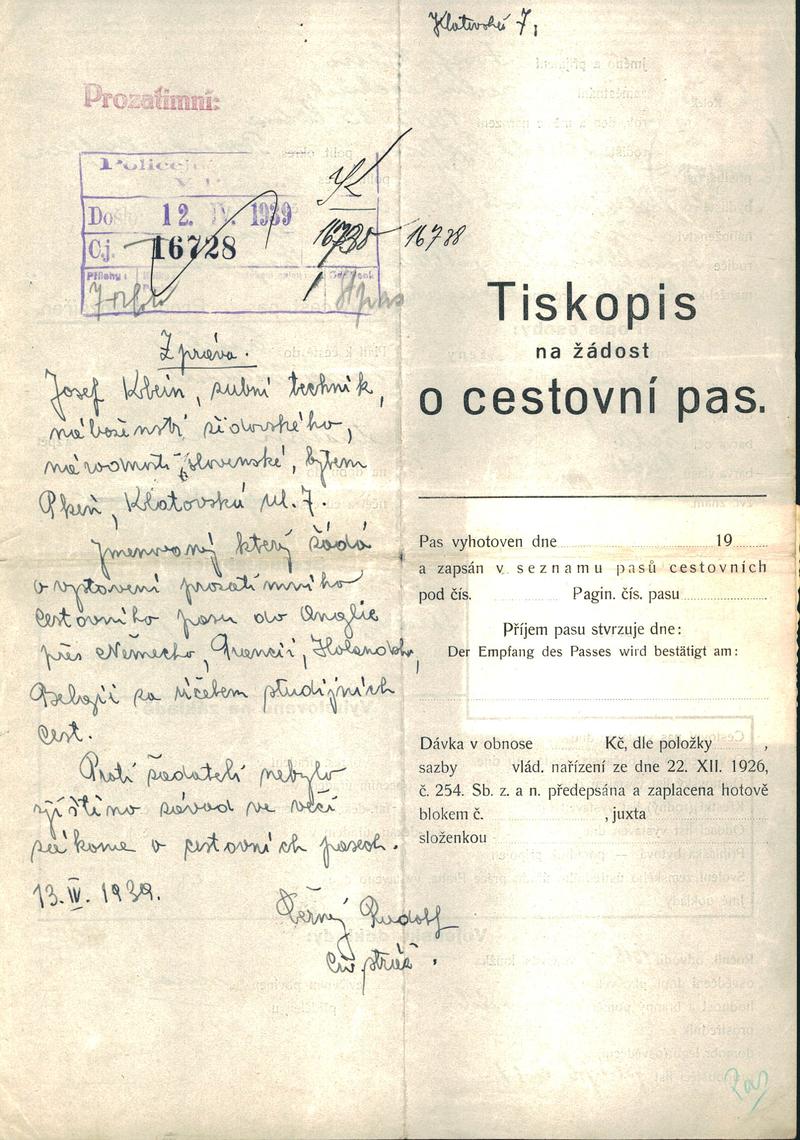 Klatovská 7,
Prozatimní:
Policejní
Došlo: 12. IV. 1939
Čj. 16728
16738
Přílohy:
Zpráva.
Josef Klein, zubní technik,
náboženství židovského,
národnosti slovenské, bytem
Plzeň, Klatovská ul. 7.
Jmenovaný který žádá
o vystavení prozatímního
cestovního pasu do Anglie
přes Německo, Francii, Holandsko,
Belgii za účelem studijních
cest.
Proti žadateli nebylo
zjištěno závad ve věci
zákona o cestovních pasech.
13. IV. 1939.
Černý Rudolf
civ. stráž.
Tiskopis
na žádost
o cestovní pas.
Pas vyhotoven dne 19
a zapsán v seznamu pasů cestovních
pod čís. Pagin. čís. pasu
Příjem pasu stvrzuje dne:
Der Empfang des Passes wird bestätigt am:
Dávka v obnose Kč, dle položky ,
sazby vlád. nařízení ze dne 22. XII. 1926,
č. 254. Sb. z. a n. předepsána a zaplacena hotově
blokem č. , juxta
složenkou